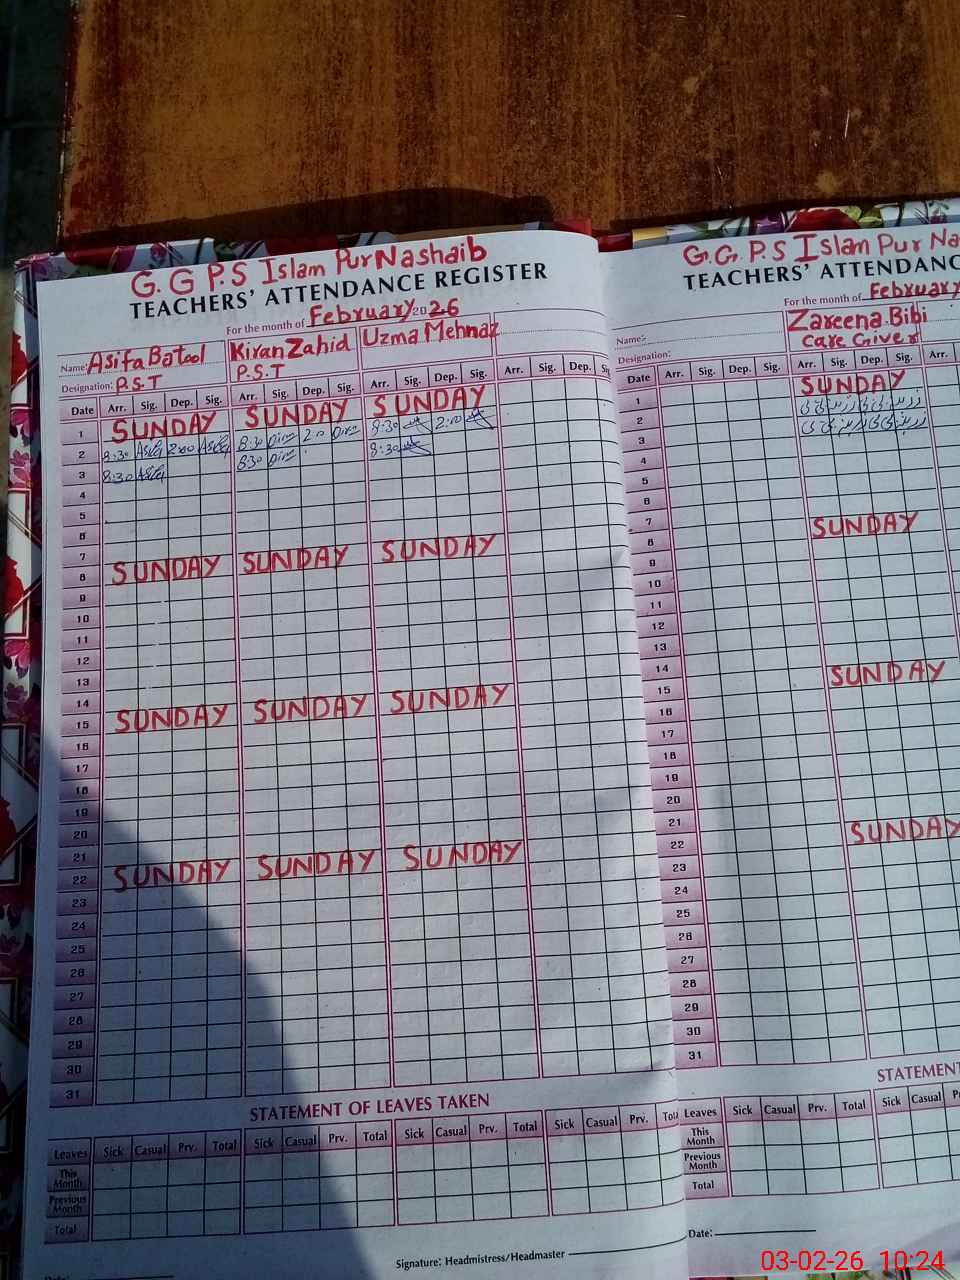 G.G P.S Islam Pur Nashaib
TEACHERS' ATTENDANCE REGISTER
For the month of February 2026
Name: Asifa Batool Kiran Zahid Uzma Mehnaz
Designation: P.S.T P.S.T
Date Arr. Sig. Dep. Sig. Arr. Sig. Dep. Sig. Arr. Sig. Dep. Sig. Arr. Sig. Dep.
1 SUNDAY SUNDAY SUNDAY
2 8:30 Asifa 2:00 Asifa 8:30 2:0 8:30 2:00
3 8:30 Asifa 8:30 8:30
4
5
6
7
8 SUNDAY SUNDAY SUNDAY
9
10
11
12
13
14
15 SUNDAY SUNDAY SUNDAY
16
17
18
19
20
21
22 SUNDAY SUNDAY SUNDAY
23
24
25
26
27
28
29
30
31
STATEMENT OF LEAVES TAKEN
Leaves Sick Casual Prv. Total Sick Casual Prv. Total Sick Casual Prv. Total Sick Casual Prv.
This Month
Previous Month
Total
Signature: Headmistress/Headmaster
G.G. P.S Islam Pur
TEACHERS'
For the month of February
Name: Zareena Bibi
Designation: Care Giver
Date Arr. Sig. Dep. Sig. Arr. Sig. Dep. Sig. Arr.
1 SUNDAY
2 زرینہ بی بی زرینہ بی بی
3 زرینہ بی بی زرینہ بی بی
4
5
6
7
8 SUNDAY
9
10
11
12
13
14
15 SUNDAY
16
17
18
19
20
21
22 SUNDAY
23
24
25
26
27
28
29
30
31
STATEMENT
Leaves Sick Casual Prv. Total Sick Casual
This Month
Previous Month
Total
Date:
03-02-26 10:24